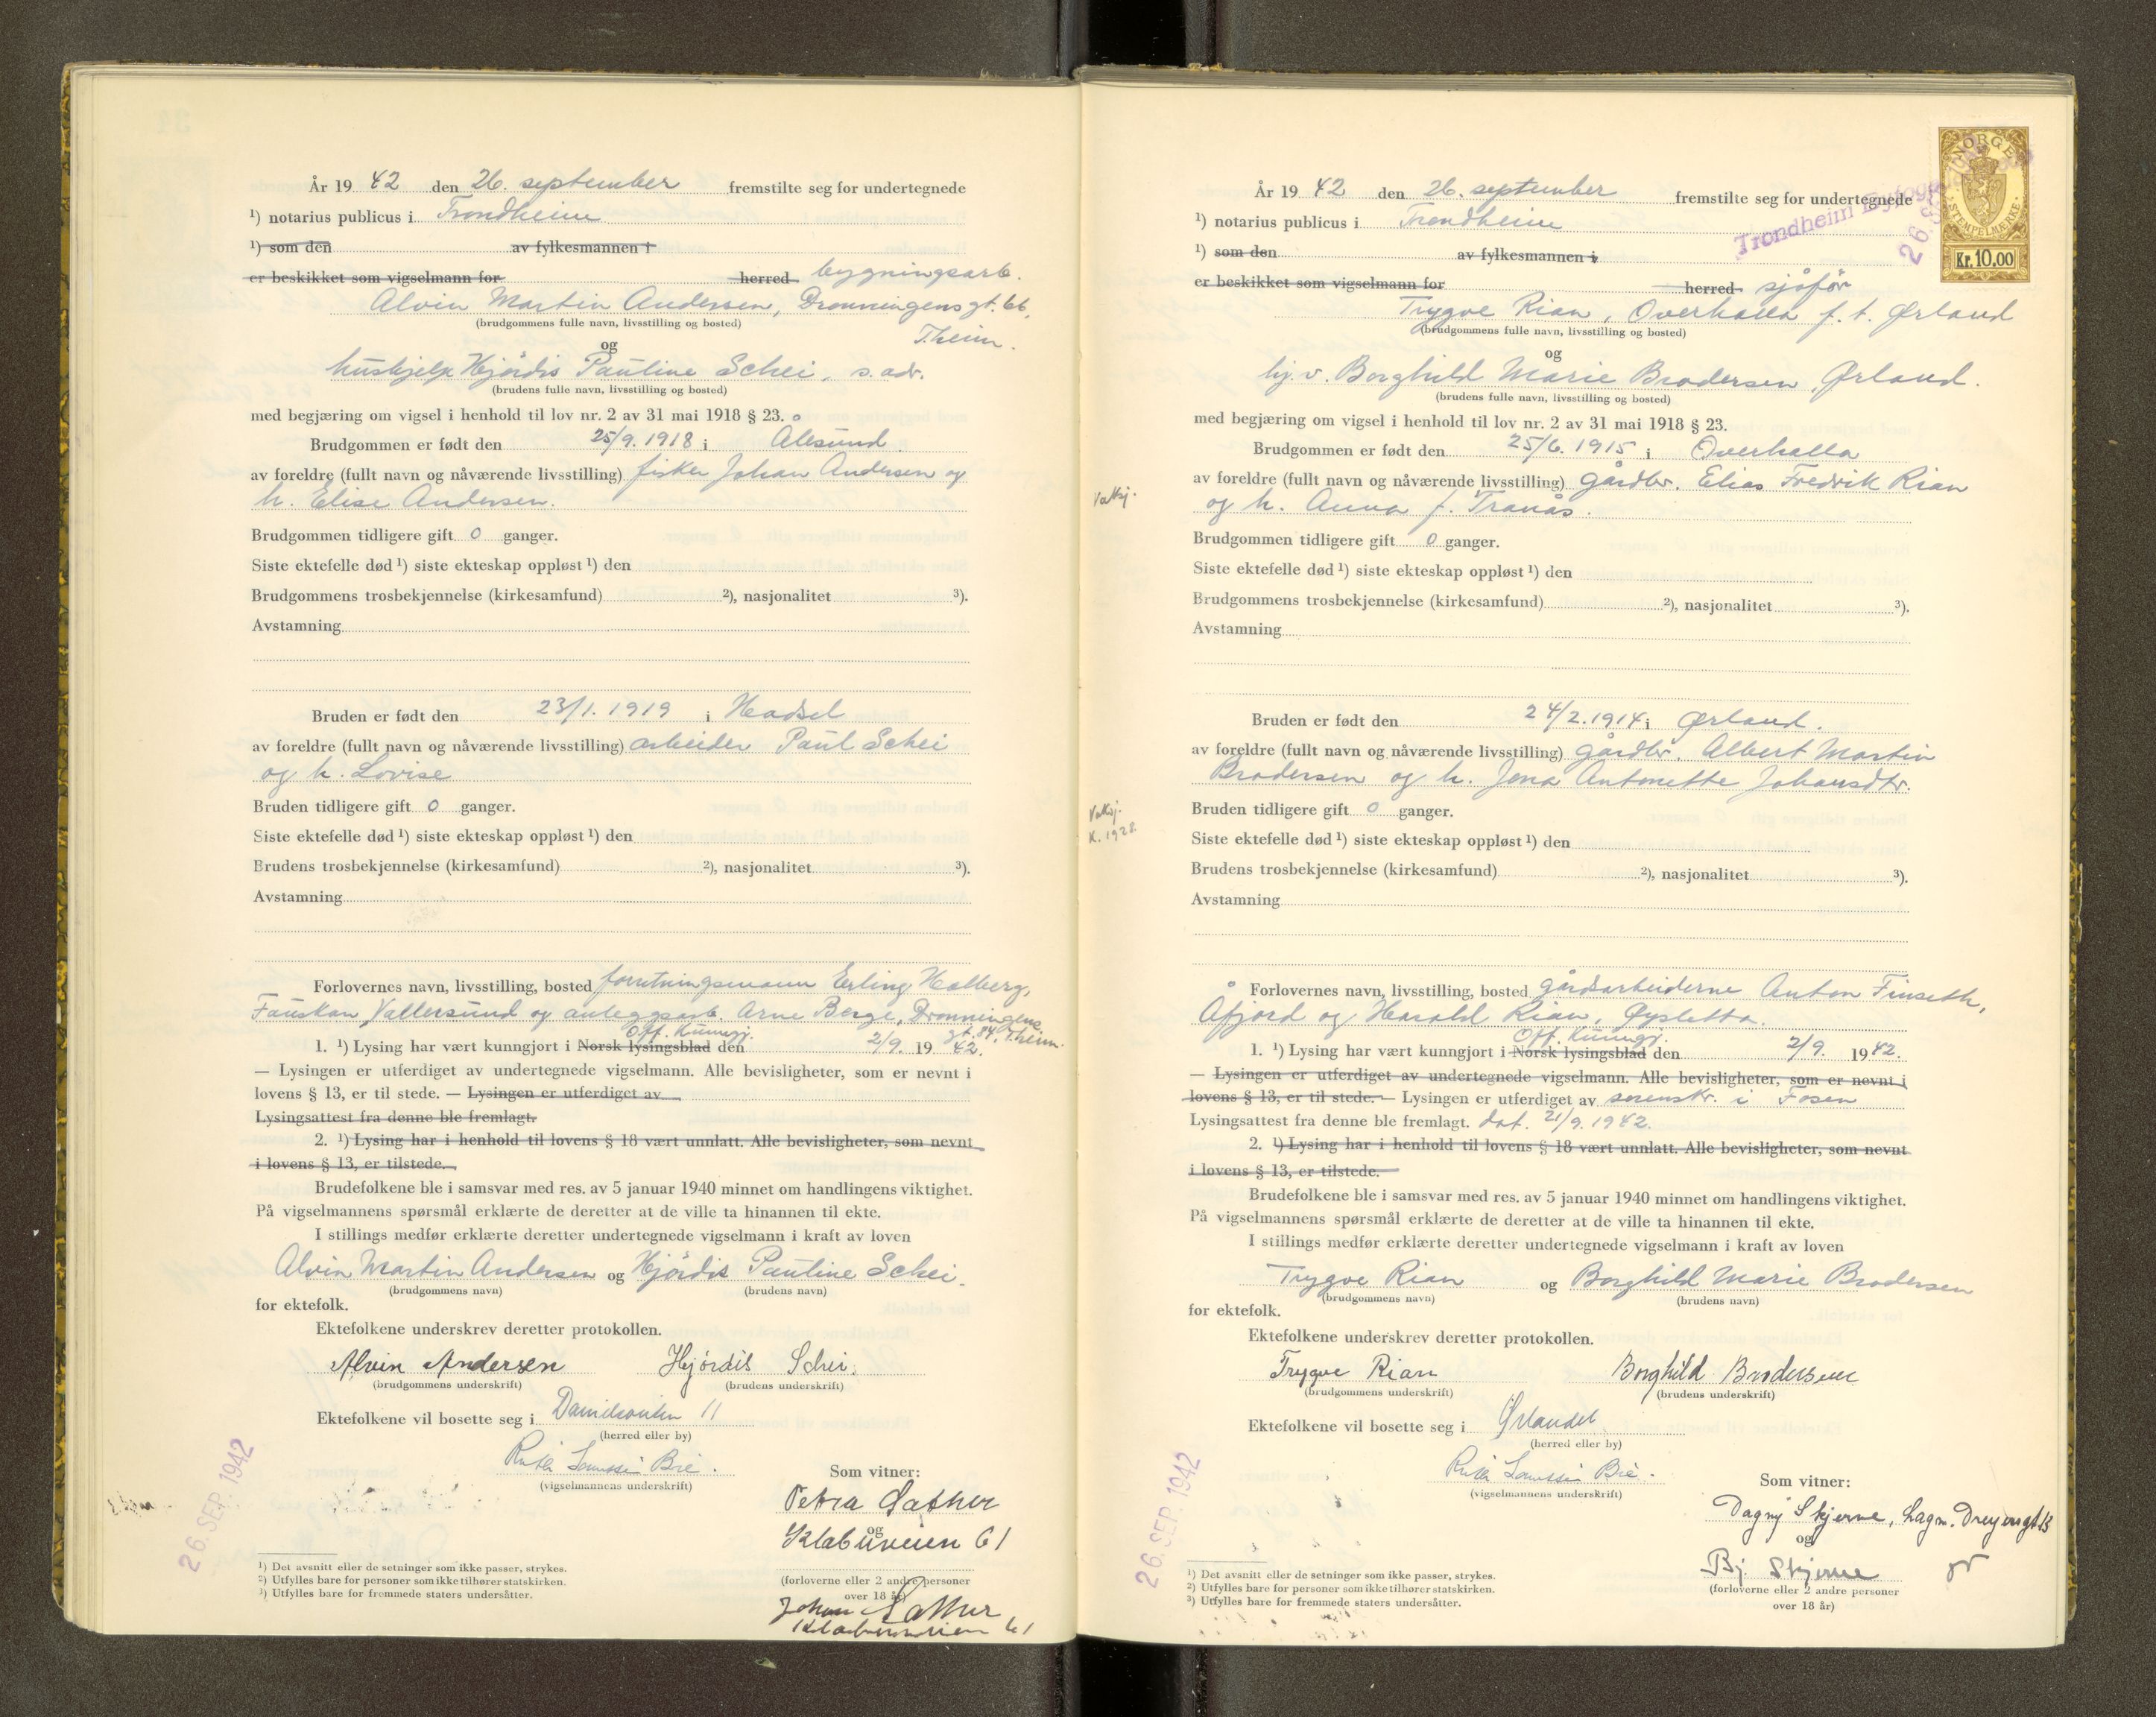 År 19 42 den 26. september fremstilte seg for undertegnede
¹) notarius publicus i Trondheim
¹) som den av fylkesmannen i
er beskikket som vigselmann for herred bygningsarb.
Alvin Martin Andersen, Dronningensgt. 66,
T.heim.
(brudgommens fulle navn, livsstilling og bosted)
og
hushjelp Hjördis Pauline Schei, s. adr.
(brudens fulle navn, livsstilling og bosted)
med begjæring om vigsel i henhold til lov nr. 2 av 31 mai 1918 § 23.
Brudgommen er født den 25/9. 1918 i Ålesund
av foreldre (fullt navn og nåværende livsstilling) fisker Johan Andersen og
h. Elise Andersen.
Brudgommen tidligere gift 0 ganger.
Siste ektefelle død ¹) siste ekteskap oppløst ¹) den
Brudgommens trosbekjennelse (kirkesamfund) ²), nasjonalitet ³).
Avstamning
Bruden er født den 23/1. 1919 i Hadsel
av foreldre (fullt navn og nåværende livsstilling) arbeider Paul Schei
og h. Lovise
Bruden tidligere gift 0 ganger.
Siste ektefelle død ¹) siste ekteskap oppløst ¹) den
Brudens trosbekjennelse (kirkesamfund) ²), nasjonalitet ³).
Avstamning
Forlovernes navn, livsstilling, bosted forretningsmann Erling Halberg,
Fauskan, Vallersund og anleggsarb. Arne Berge, Dronningens
gt. 84, T.heim.
Off. Kunngj.
1. ¹) Lysing har vært kunngjort i Norsk lysingsblad den 2/9. 19 42.
— Lysingen er utferdiget av undertegnede vigselmann. Alle bevisligheter, som er nevnt i
lovens § 13, er til stede. — Lysingen er utferdiget av
Lysingsattest fra denne ble fremlagt.
2. ¹) Lysing har i henhold til lovens § 18 vært unnlatt. Alle bevisligheter, som nevnt
i lovens § 13, er tilstede.
Brudefolkene ble i samsvar med res. av 5 januar 1940 minnet om handlingens viktighet.
På vigselmannens spørsmål erklærte de deretter at de ville ta hinannen til ekte.
I stillings medfør erklærte deretter undertegnede vigselmann i kraft av loven
Alvin Martin Andersen og Hjördis Pauline Schei.
(brudgommens navn) (brudens navn)
for ektefolk.
Ektefolkene underskrev deretter protokollen.
Alvin Andersen Hjördis Schei.
(brudgommens underskrift) (brudens underskrift)
Ektefolkene vil bosette seg i 11
(herred eller by)
26. SEP. 1942
(vigselmannens underskrift)
Som vitner:
Petra Sather
og
Klabuveien 61
(forloverne eller 2 andre personer
over 18 år)
Johan Sather
Klabuveien 61
¹) Det avsnitt eller de setninger som ikke passer, strykes.
²) Utfylles bare for personer som ikke tilhører statskirken.
³) Utfylles bare for fremmede staters undersåtter.
NORGE
STEMPELMERKE
Kr. 10.00
Trondheim Byfog
26. SE
År 19 42 den 26. september fremstilte seg for undertegnede
¹) notarius publicus i Trondheim
¹) som den av fylkesmannen i
er beskikket som vigselmann for herred sjåfør
Trygve Rian, Overhalla f. t. Ørland
(brudgommens fulle navn, livsstilling og bosted)
og
hj. v. Borghild Marie Brodersen, Ørland.
(brudens fulle navn, livsstilling og bosted)
med begjæring om vigsel i henhold til lov nr. 2 av 31 mai 1918 § 23.
Brudgommen er født den 25/6. 1915 i Overhalla
av foreldre (fullt navn og nåværende livsstilling) gårdbr. Elias Fredrik Rian
og h. Anna f. Tranås.
Brudgommen tidligere gift 0 ganger.
Siste ektefelle død ¹) siste ekteskap oppløst ¹) den
Brudgommens trosbekjennelse (kirkesamfund) ²), nasjonalitet ³).
Avstamning
Bruden er født den 24/2. 1914 i Ørland.
av foreldre (fullt navn og nåværende livsstilling) gårdbr. Albert Martin
Brodersen og h. Jena Antonette Johansdtr.
K. 1928.
Bruden tidligere gift 0 ganger.
Siste ektefelle død ¹) siste ekteskap oppløst ¹) den
Brudens trosbekjennelse (kirkesamfund) ²), nasjonalitet ³).
Avstamning
Forlovernes navn, livsstilling, bosted gårdsarbeiderne Anton Finseth,
Åfjord og Harald Rian, Øysletta.
Off. Kunngj.
1. ¹) Lysing har vært kunngjort i Norsk lysingsblad den 2/9. 19 42.
— Lysingen er utferdiget av undertegnede vigselmann. Alle bevisligheter, som er nevnt i
lovens § 13, er til stede. — Lysingen er utferdiget av sorenskr. i Fosen
Lysingsattest fra denne ble fremlagt. dat. 21/9. 1942.
2. ¹) Lysing har i henhold til lovens § 18 vært unnlatt. Alle bevisligheter, som nevnt
i lovens § 13, er tilstede.
Brudefolkene ble i samsvar med res. av 5 januar 1940 minnet om handlingens viktighet.
På vigselmannens spørsmål erklærte de deretter at de ville ta hinannen til ekte.
I stillings medfør erklærte deretter undertegnede vigselmann i kraft av loven
Trygve Rian og Borghild Marie Brodersen
(brudgommens navn) (brudens navn)
for ektefolk.
Ektefolkene underskrev deretter protokollen.
Trygve Rian Borghild Brodersen
(brudgommens underskrift) (brudens underskrift)
Ektefolkene vil bosette seg i Ørlandet
(herred eller by)
26. SEP. 1942
(vigselmannens underskrift)
Som vitner:
Dagny Skjerne, Lagm. Dreyersgt 13
og
Bj. Skjerne
(forloverne eller 2 andre personer
over 18 år)
¹) Det avsnitt eller de setninger som ikke passer, strykes.
²) Utfylles bare for personer som ikke tilhører statskirken.
³) Utfylles bare for fremmede staters undersåtter.